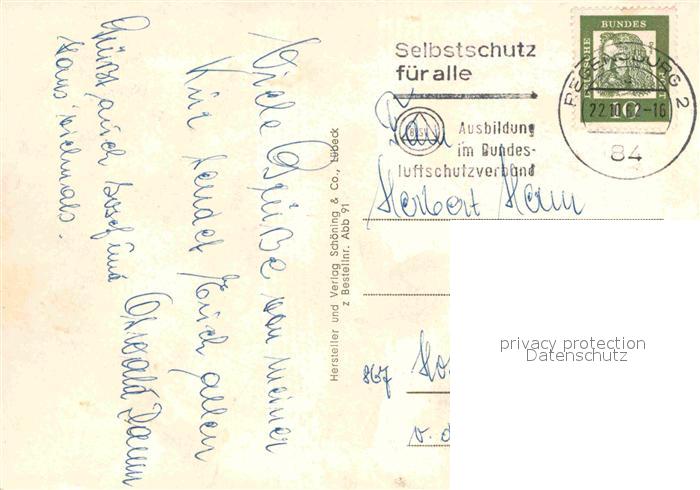 Viele Grüße von meiner
Kur sendet Euch allen
Oswald
Grüßt auch Josef und
Hans vielmals.
Hersteller und Verlag Schöning & Co., Lübeck
z Bestellnr. Abb 91
Selbstschutz
für alle
BLSV
Ausbildung
im Bundes-
luftschutzverband
DEUTSCHE BUNDESPOST
10
REGENSBURG 2
22.10.62-16
84
Herbert
867
v. d
privacy protection
Datenschutz